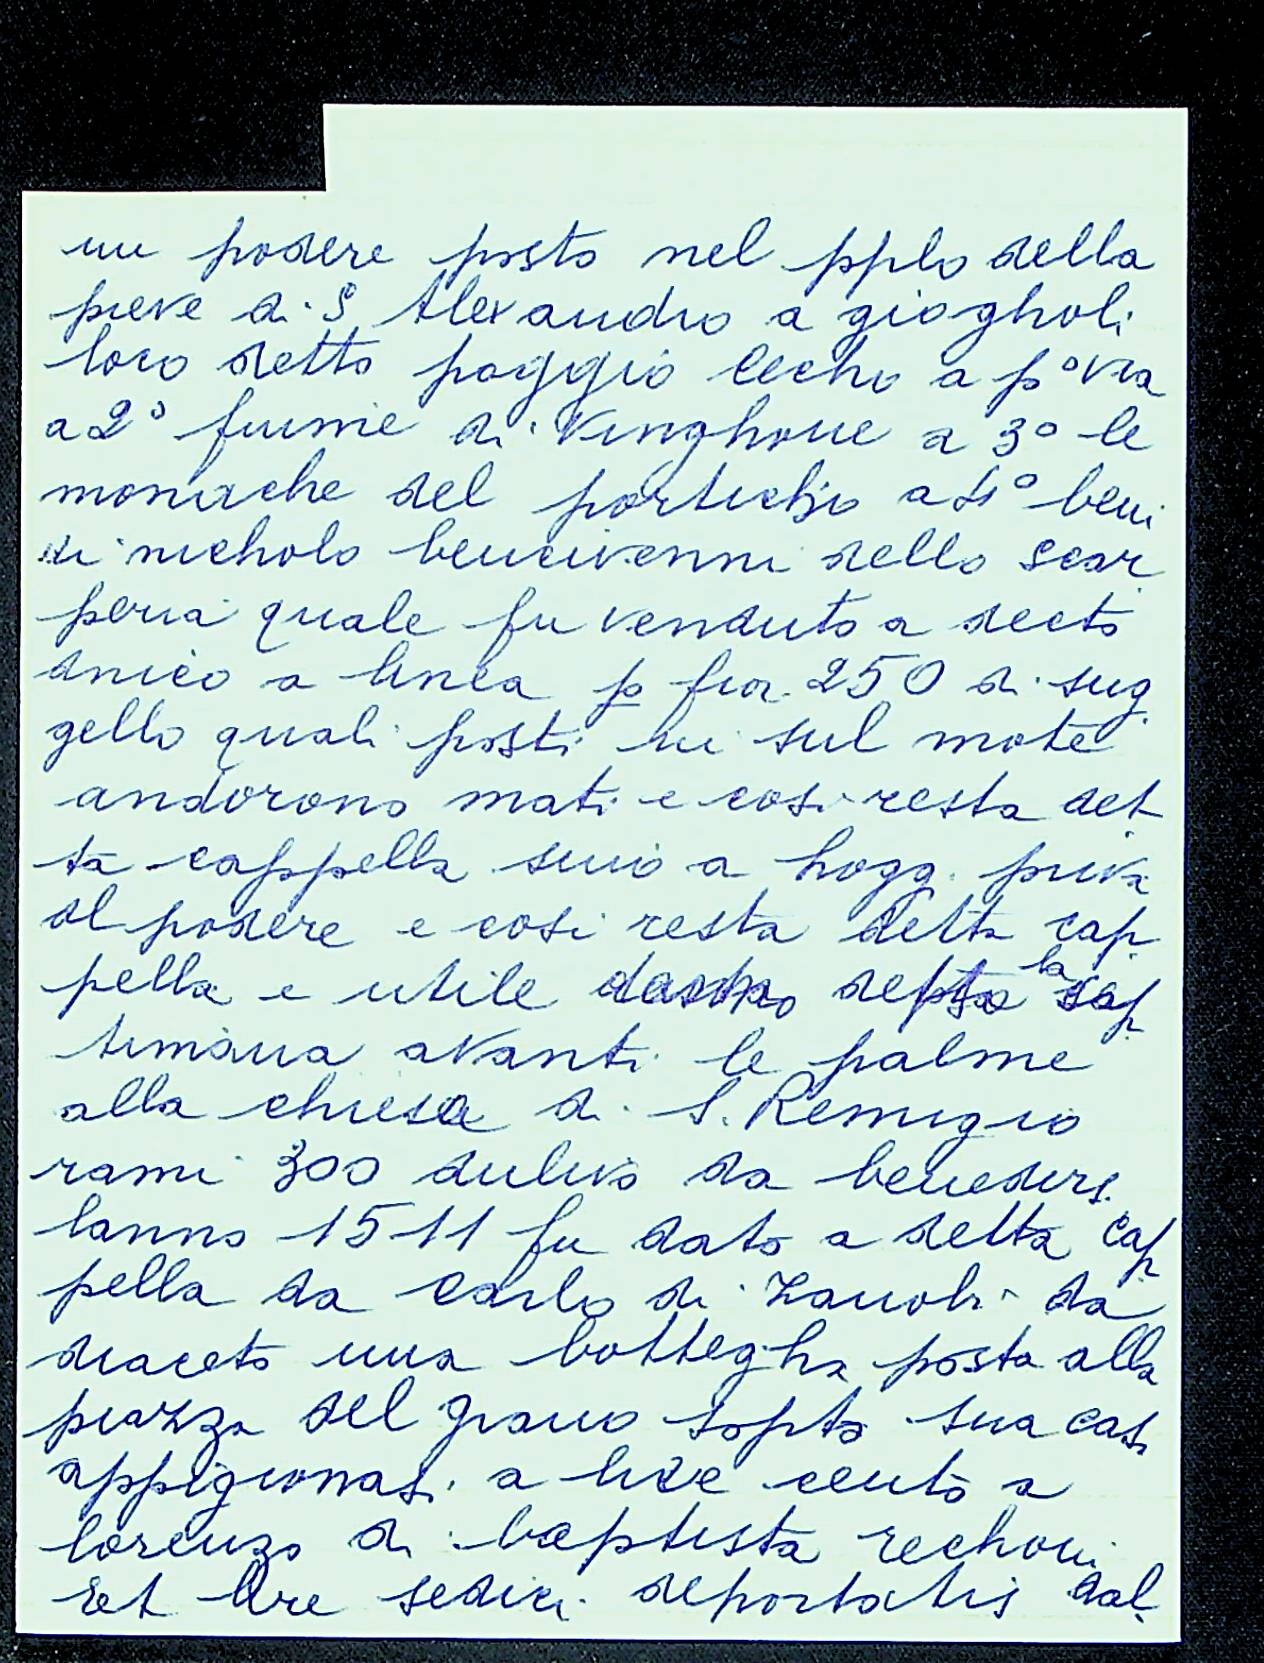 un podere posto nel pplo della
pieve di S Alexandro a giogholi
loco detto poggio Cecho a p° via
a 2° fiume di Vinghone a 3° le
monache del portichio a 4° beni
di nicholo bencivenni dello Scar
peria quale fu venduto a decto
a linea p fior. 250 di sug
gello quali posti sul mote
andorono mati e cosi resta det
ta cappella sino a hogg. priva
del podere e cosi resta detta cap
pella e utile
timana avanti le palme
alla chiesa di S. Remigio
rami 300 dulivo da benedirs.
lanno 1511 fu dato a detta cap
pella da Carlo di Zanobi da
diaceto una bottegha posta alla
piazza del grano sopto sua casa
appigionasi a lire cento a
lorenzo di baptista rechoni
Et lire sedici deportatis dal